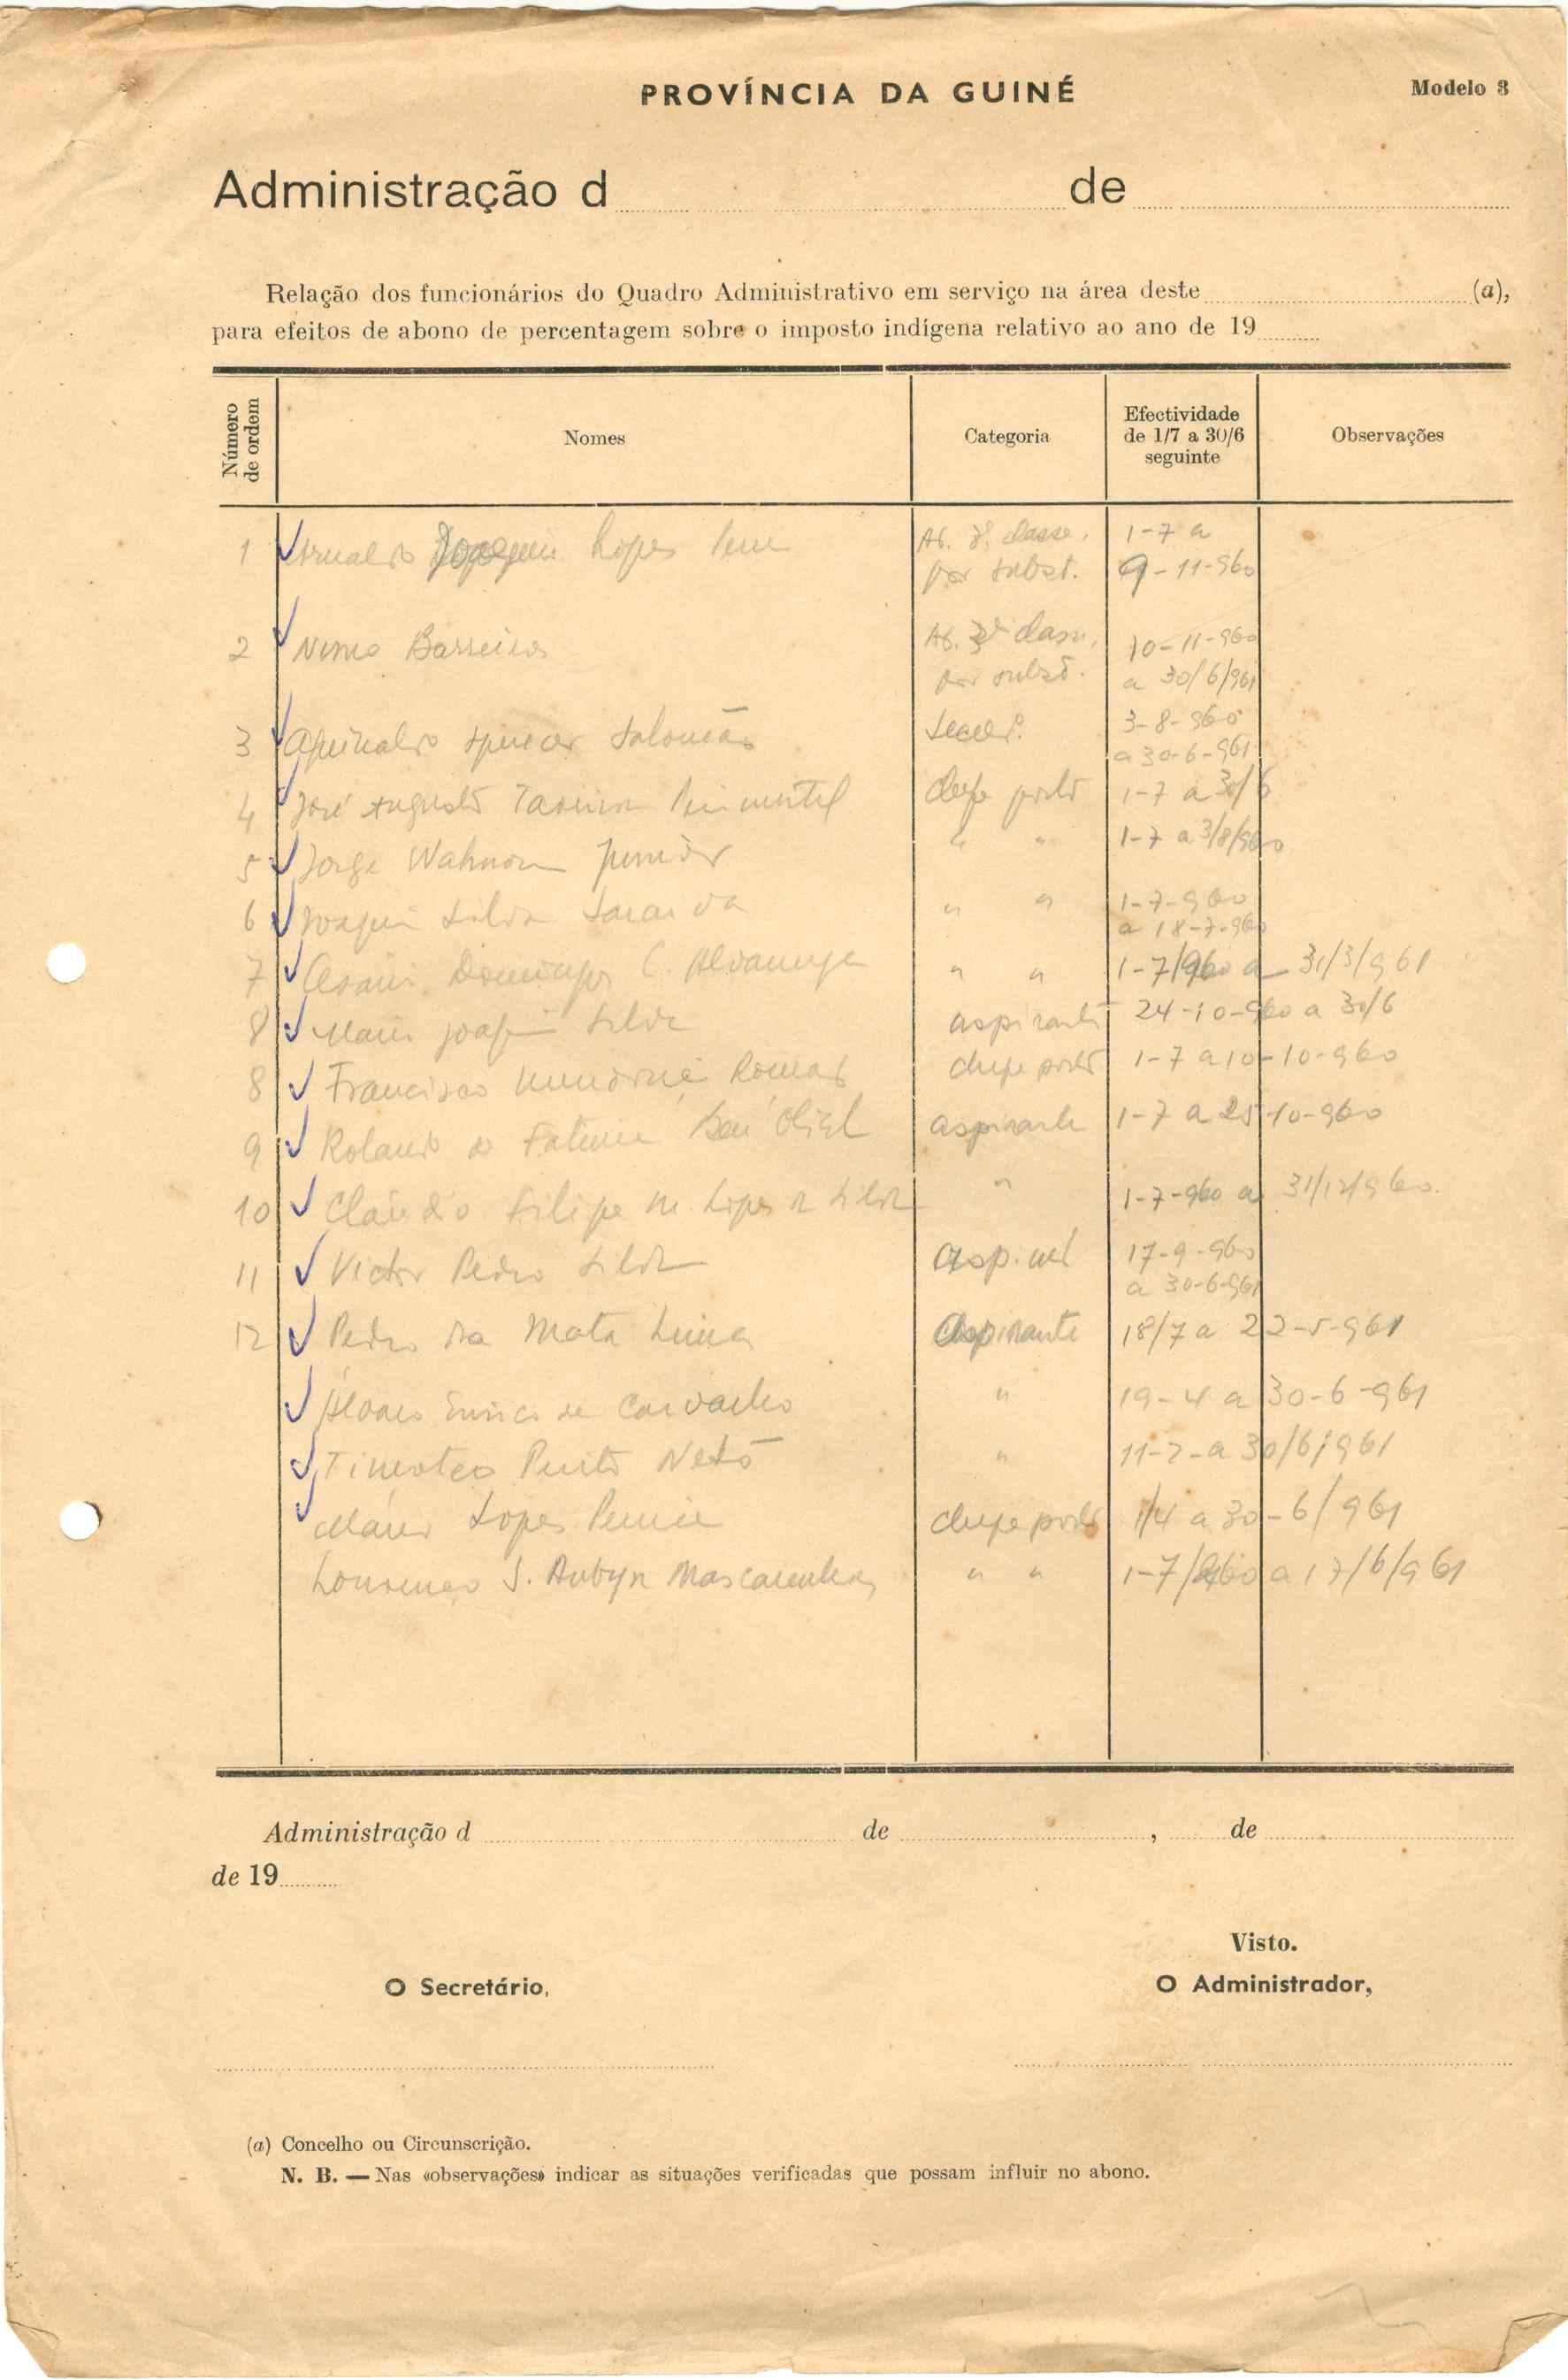 PROVÍNCIA DA GUINÉ
Modelo 8
Administração d de
Relação dos funcionários do Quadro Administrativo em serviço na área deste (a),
para efeitos de abono de percentagem sobre o imposto indígena relativo ao ano de 19
Número de ordem
Nomes
Categoria
Efectividade
de 1/7 a 30/6
seguinte
Observações
1 Lopes classe. 1-7 a
por subst. 9-11-960
2 Nuno Barreiros classe, 10-11-960
por a 30/6/961
3 Salomão 3-8-960
a 30-6-961
4 José Augusto Pimentel 1-7 a 30/6
5 Jorge Wahnon Junior " " 1-7 a 3/8/960
6 Joaquim Silva " " 1-7-960
a 18-7-960
7 Domingos C. Alvarenga " " 1-7/960 a 31/3/961
8 Mário Joaquim Silva aspirante 24-10-960 a 30/6
8 Francisco chefe posto 1-7 a 10-10-960
9 Rolando aspirante 1-7 a 25-10-960
10 Cláudio Filipe M. Lopes da Silva " 1-7-960 a 31/12/960.
11 Victor Pedro Silva 17-9-960
a 30-6-961
12 Pedro da Mata Lima aspirante 18/7 a 22-5-961
Álvaro de Carvalho " 19-4 a 30-6-961
Timoteo Pinto Neto " 11-2-a 30/6/961
Mário Lopes chefe posto 1/4 a 30-6/961
Lourenço S. Aubyn Mascarenhas " " 1-7/960 a 17/6/961
Administração d de , de
de 19
Visto.
O Secretário, O Administrador,
(a) Concelho ou Circunscrição.
N. B. — Nas «observações» indicar as situações verificadas que possam influir no abono.